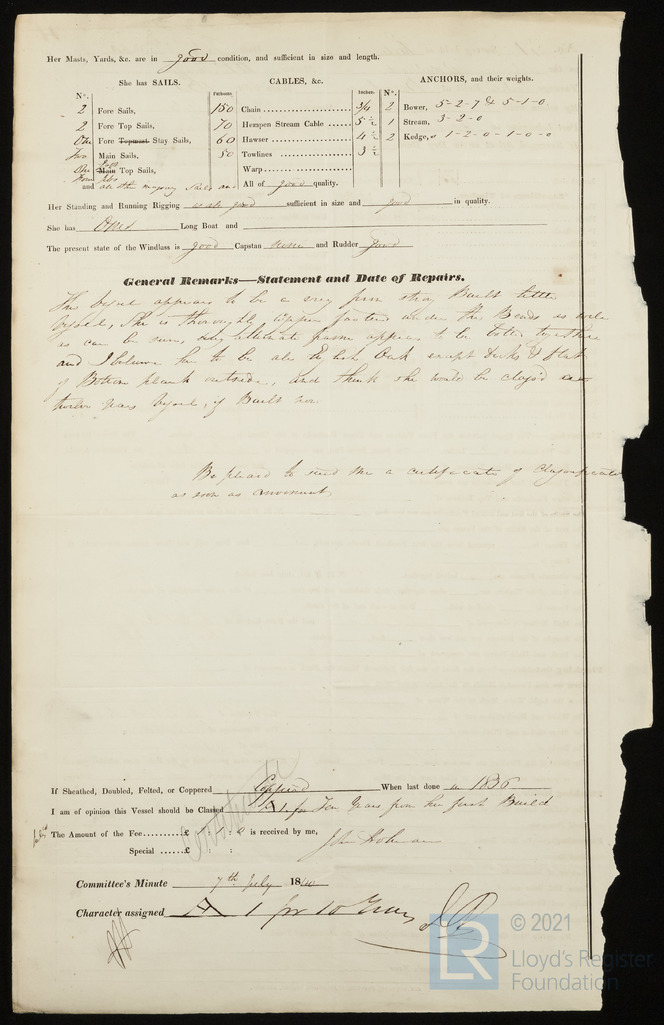 Her Masts, Yards, &c. are in good condition, and sufficient in size and length.
She has SAILS. CABLES, &c. ANCHORS, and their weights.
N°. Fathoms Inches. N°.
2 Fore Sails, 150 Chain 3/4 2 Bower, 5-2-7 & 5-1-0
2 Fore Top Sails, 70 Hempen Stream Cable 5 ½ 1 Stream, 3-2-0
One Fore Topmast Stay Sails, 60 Hawser 4 ½ 2 Kedge, 1-2-0-1-0-0
Two Main Sails, 50 Towlines 3 ½
One Main Top Sails, Warp
Four Jibs
and all other Sails and All of good quality.
Her Standing and Running Rigging good sufficient in size and good in quality.
She has One Long Boat and
The present state of the Windlass is good Capstan none and Rudder good
General Remarks—Statement and Date of Repairs.
This Vessel appears to be a very fine Built little
Vessel, She is thoroughly Copper fastened under the Bends as well
as can be seen, alternate appears to be bolted together
and I believe her to be all English Oak except Decks & flat
of Bottom plank outside, and think she would be Class'd a
twelve years Vessel, if Built now
Be pleased to send me a certificate of Classification
as soon as convenient
If Sheathed, Doubled, Felted, or Coppered Coppered When last done in 1836
I am of opinion this Vessel should be Classed A 1 for Ten Years from her first Build
The Amount of the Fee £ 1 : 1 : 0 is received by me,
John
Special £ : :
Committee's Minute 7th July 1840
Character assigned A 1 for 10 Years
LR
© 2021
Lloyd's Register
Foundation